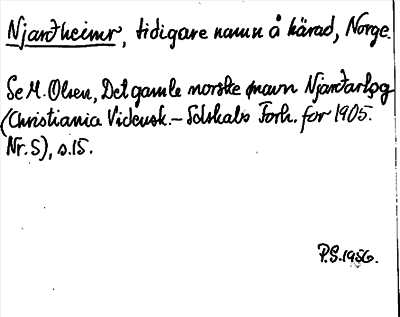 Njarðheimr, tidigare namn å härad, Norge.
Se M. Olsen, Det gamle norske ønavn Njarðarlǫg
(Christiania Vidensk.-Selskabs Forh. for 1905.
Nr. 5), s. 15.
P.S. 1956.